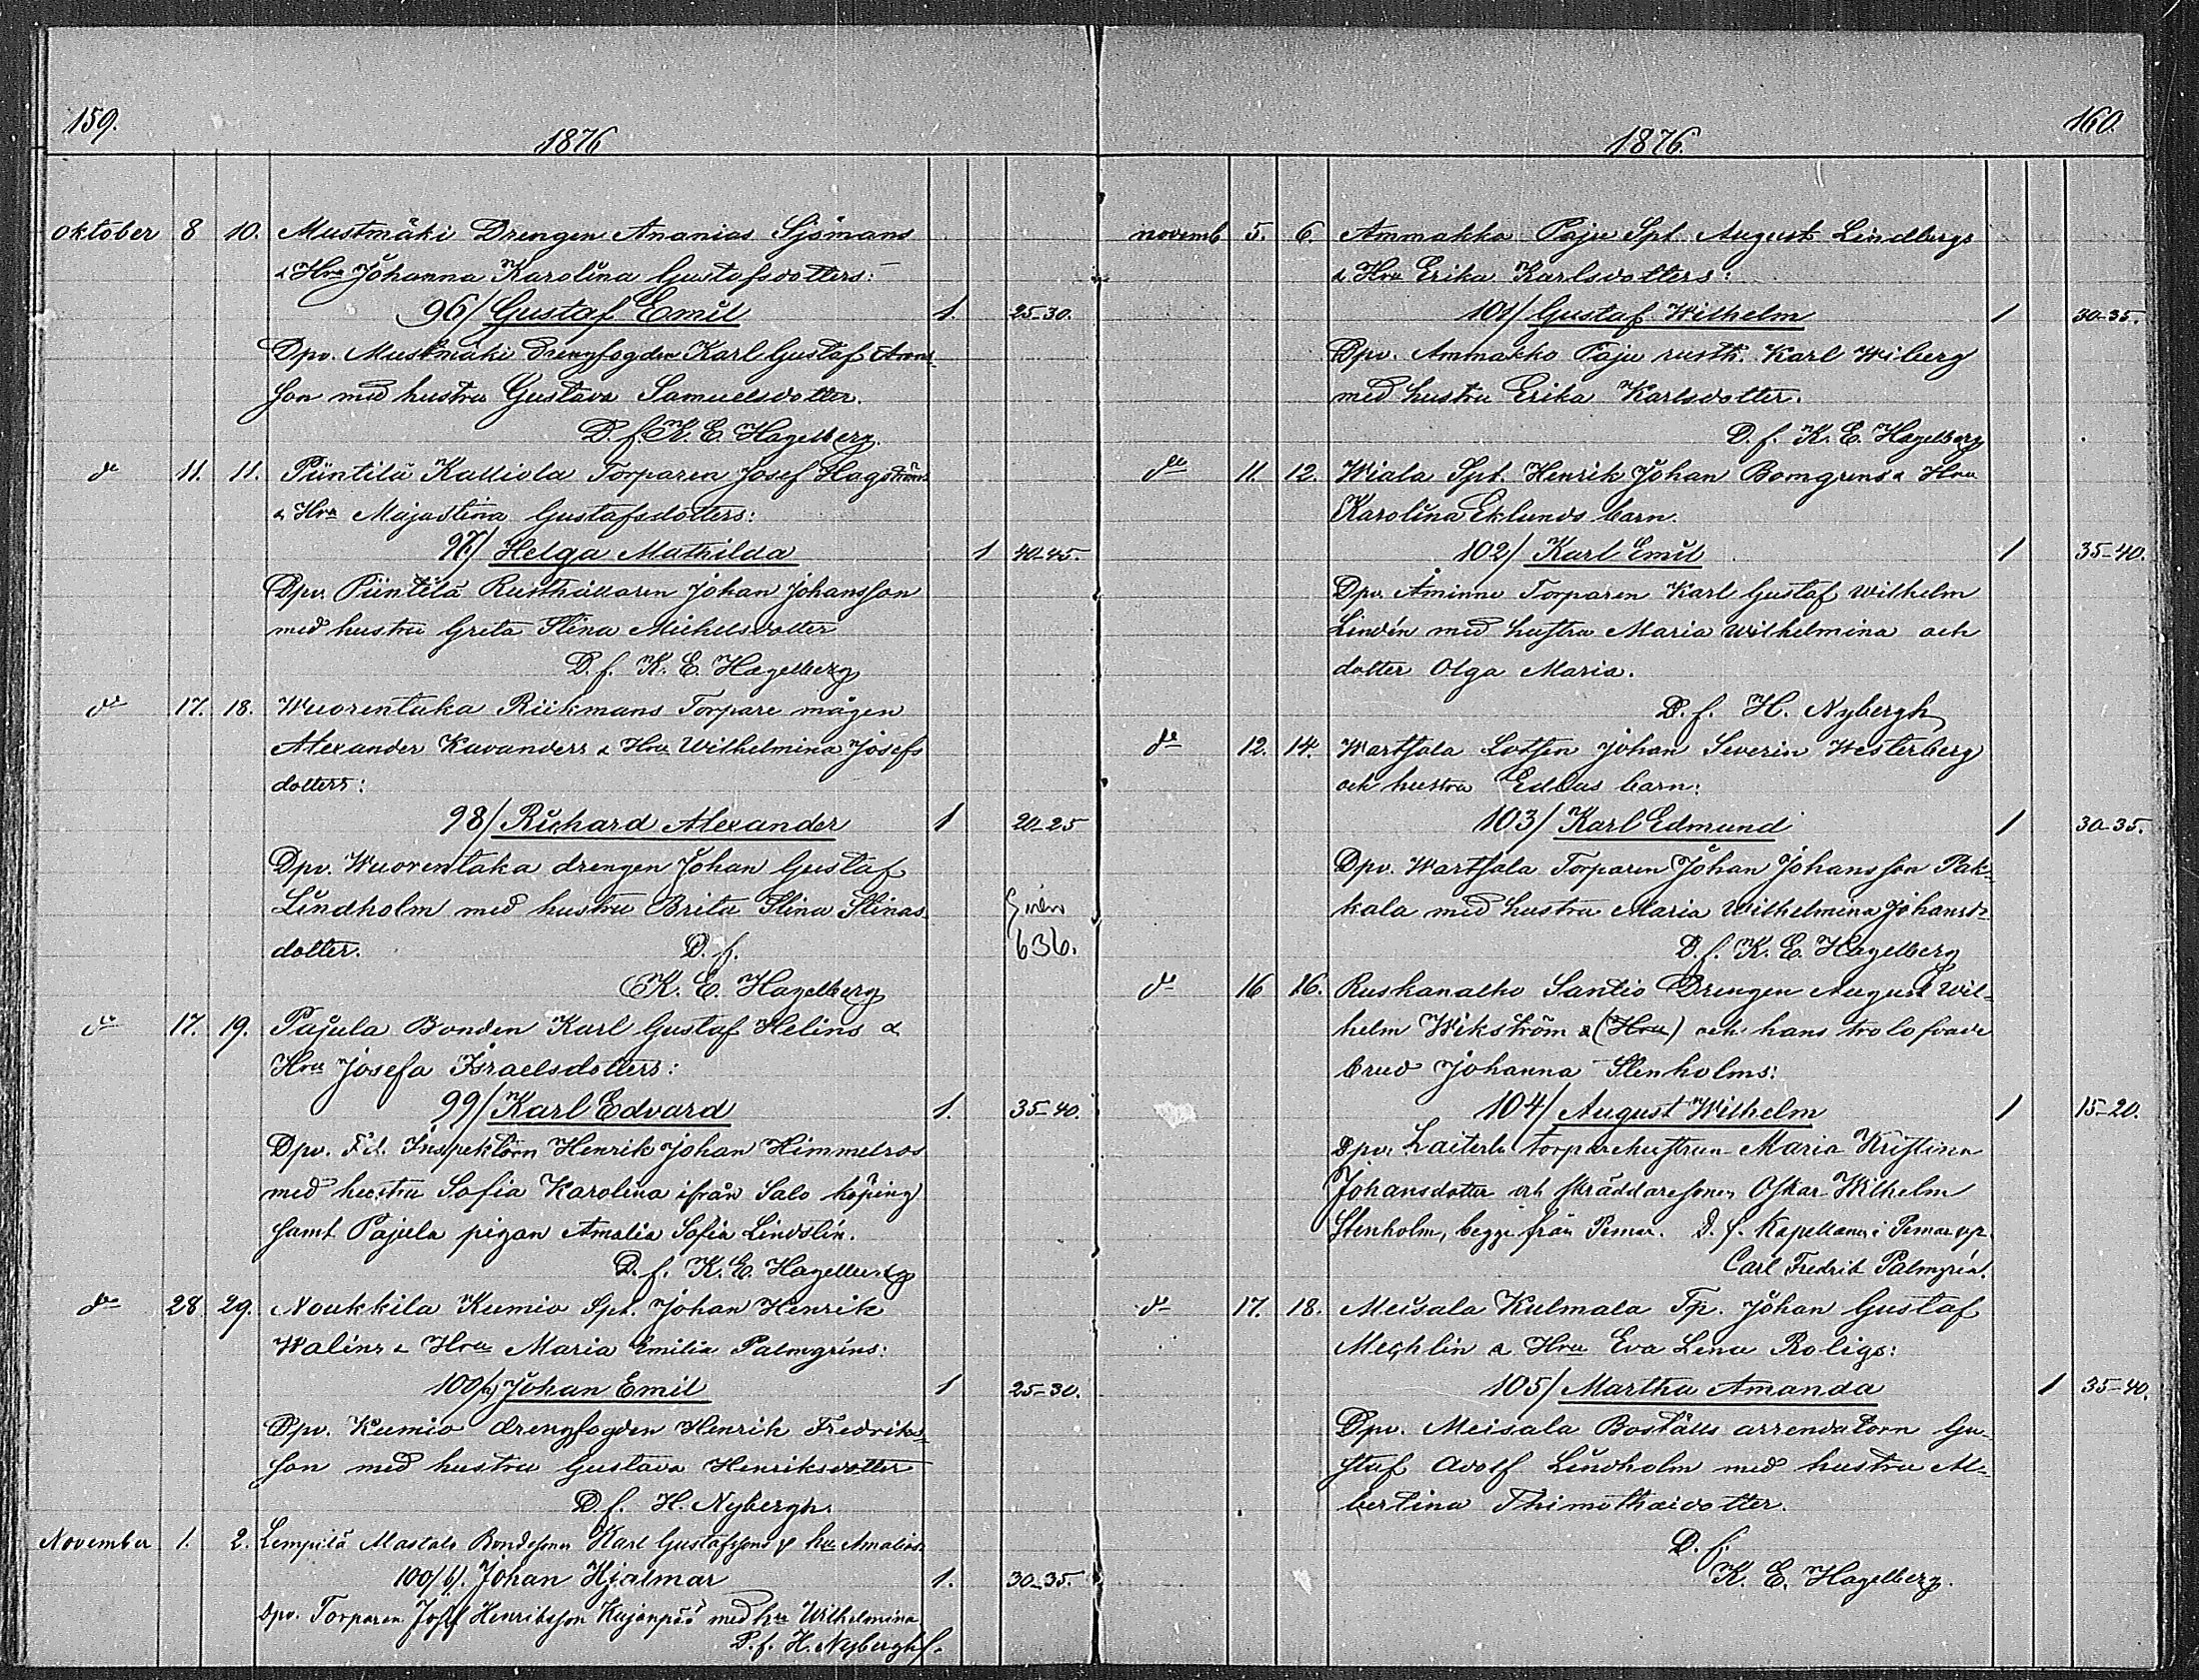 159.
1876
oktober 8 10. Mustmäki Drengen Ananias Sjömans
& Hru Johanna Karolina Gustafsdotters:
96/ Gustaf Emil 1. 25-30.
Dpv. Mustmäki Drengfogden Karl Gustaf
son med hustru Gustava Samuelsdotter.
D. f. K. E. Hagelberg.
do 11. 11. Püntilä Kalliola Torparen Josef Hagströms
& Hru Majastina Gustafsdotters:
97/ Helga Mathilda 1 40-45.
Dpv. Püntilä Rusthållaren Johan Johansson
med hustru Greta Stina Michelsdotter
D. f. K. E. Hagelberg
do 17. 18. Wuorentaka Riikmans Torpare mågen
Alexander Kavanders & Hru Wilhelmina Josefs
dotters:
98/ Richard Alexander 1 20-25
Dpv. Wuorentaka drengen Johan Gustaf
Lindholm med hustru Brita Stina Stinas
dotter. D. f. 636.
K. E. Hagelberg
do 17. 19. Pajula Bonden Karl Gustaf Helins &
Hru Josefa Israelsdotters:
99/ Karl Edvard 1. 35-40.
Dpv. F.d. Inspektorn Henrik Johan Himmelros
med hustru Sofia Karolina ifrån Salo köping
samt Pajula pigan Amalia Sofia Lindslin.
D. f. K. E. Hagelberg
do 28 29. Noukkila Kumio Spt. Johan Henrik
Walins & Hru Maria Emilia Palmgrens:
100/a) Johan Emil 1 25-30.
Dpv. Kumio drengfogden Henrik Fredriks-
son med hustru Gustava Henriksdotter
D. f. H. Nybergh.
November 1. 2. Lempilä Mastala Bondesonen Karl Gustafssons & hu Amalias
100/b/. Johan Hjalmar 1. 30-35.
Dpv. Torparen Josef Henriksson Kujanpää med hu Wilhelmina
D. f. H. Nybergh.
160.
1876.
novemb 5. 6. Ammakko Paju Spt. August Lindbergs
& Hru Erika Karlsdotters:
101/ Gustaf Wilhelm 1 30-35.
Dpv. Ammakko Paju rusth. Karl Wiberg
med hustru Erika Karlsdotter.
D. f. K. E. Hagelberg
do 11. 12. Wiala Spt. Henrik Johan Bomgrens & Hru
Karolina Eklunds barn.
102/ Karl Emil 1 35-40.
Dpv. Åminne Torparen Karl Gustaf Wilhelm
Lindén med hustru Maria Wilhelmina och
dotter Olga Maria.
D. f. H. Nybergh
do 12. 14. Wartsala Lotsen Johan Severin Westerberg
och hustru Eddas barn:
103/ Karl Edmund 1 30-35.
Dpv. Wartsala Torparen Johan Johansson Pak-
kala med hustru Maria Wilhelmina Johansd-
D. f. K. E. Hagelberg
do 16 16. Ruskanalho Santio Drengen August Wil-
helm Wikström & (Hru) och hans trolofvade
brud Johanna Stenholms:
104/ August Wilhelm 1 15-20.
Dpv. Laiterla torparehustrun Maria Kristina
Johansdotter och skräddaresonen Oskar Wilhelm
Stenholm, begge från Pemar. D. f. Kapellanen i Pemar
Carl Fredrik Palmgrén.
do 17. 18. Meisala Kulmala Tp. Johan Gustaf
Mechlin & Hru Eva Lena Roligs:
105/ Martha Amanda 1 35-40.
Dpv. Meisala Boställs arrendatorn Gu-
staf Adolf Lindholm med hustru Al-
bertina Thimothaidotter.
D. f.
K. E. Hagelberg.